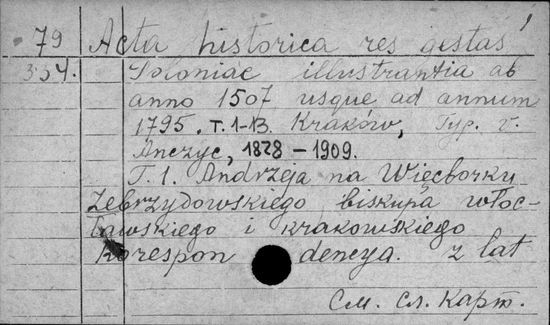 79 Acta historica res gestas
334. Poloniae illustrantia ab
anno 1507 usque ad annum
1795. T. 1-13. Kraków, Typ. v.
Anczyc, 1878-1909.
T. 1. Andrzeja na Więcborku
Zebrzydowskiego biskupa włoc-
ławskiego i krakowskiego
korespondencya. z lat
См. сл. карт.